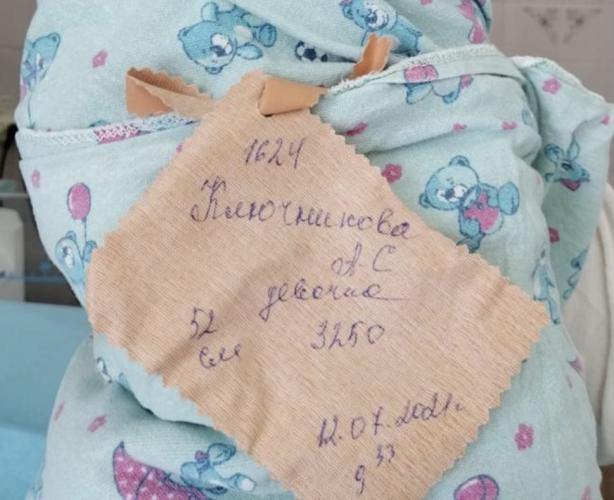 1624
Ключникова
А.С
девочка
52 3250
см
12.07.2021г.
9 33